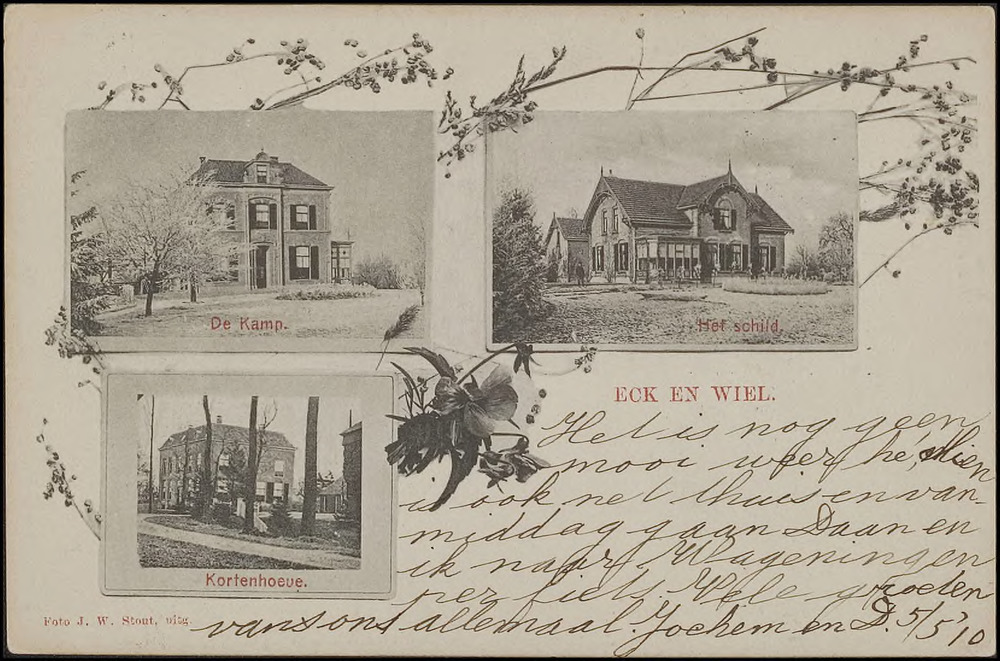 De Kamp.
Het schild.
Kortenhoeve.
ECK EN WIEL.
Het is nog geen
mooi weer he, Mien
is ook net thuis en van-
middag gaan Daan en
ik naar Wageningen
per fiets. Vele groeten
van ons allemaal. Jochem en D. 5/5 '10
Foto J. W. Stout, uitg.